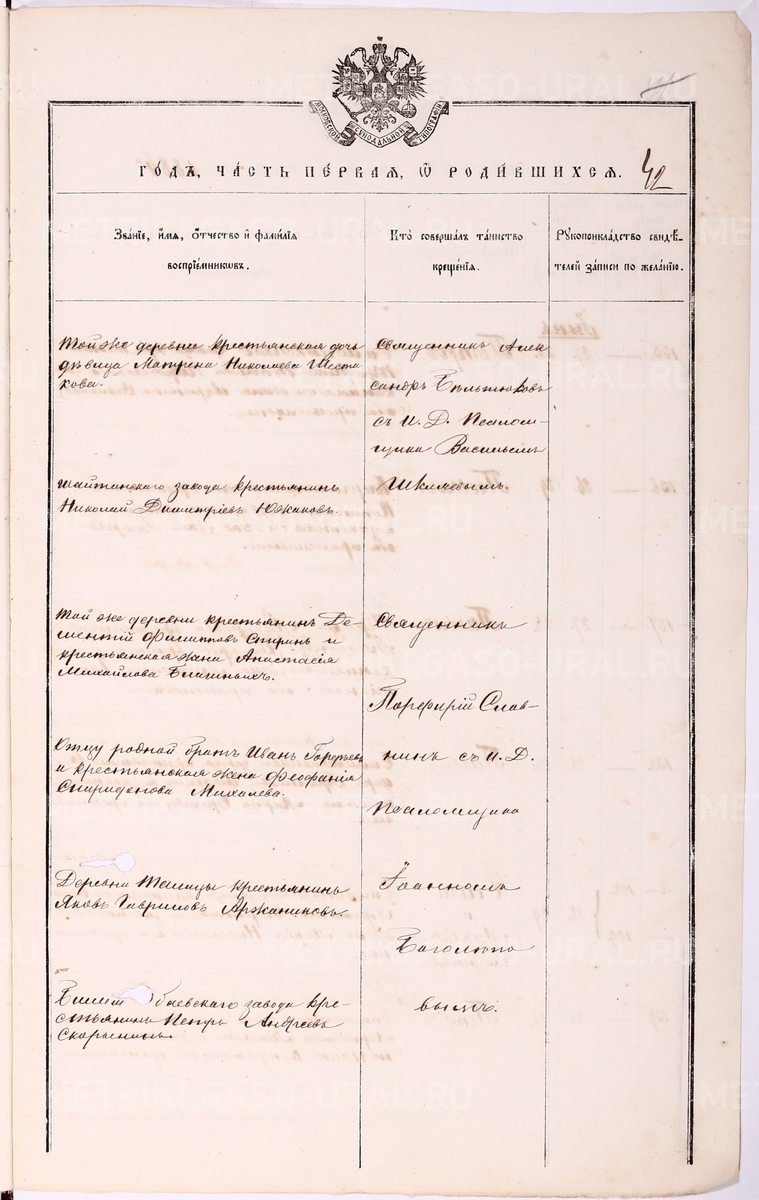 МОСКОВСКОЙ СИНОДАЛЬНОЙ ТИПОГРАФІИ
ГОДЪ, ЧАСТЬ ПЕРВАЯ, Ѡ РОДИВШИХСЯ.
42
Званіе, имя, отчество и фамилія
воспріемниковъ.
Кто совершалъ таинство
крещенія.
Рукоприкладство свидѣ-
телей записи по желанію.
Той же деревни крестьянская дочь
дѣвица Матрена Николаева Шеста
кова.
Священникъ Алек
сандръ Бѣльтюковъ
съ И. Д. Псалом-
щика Васильемъ
Шкляевымъ.
Шайтанскаго завода крестьянинъ
Николай Димитріевъ Южаковъ.
Той же деревни крестьянинъ Де-
ментій Филипповъ Спиринъ и
крестьянская жена Анастасія
Михайлова Благиныхъ.
Священникъ
Порфирій Слав-
нинъ съ И. Д.
Псаломщика
Іоанномъ
Боголюбо
вымъ.
Отцу родной братъ Иванъ
и крестьянская жена Феофанія
Спиридонова Михалева.
Деревни Талицы крестьянинъ
Яковъ Гавриловъ Аржанниковъ.
Билим баевскаго завода кре-
стьянинъ Петръ Андреевъ
Скорынинъ.
METRIKI.GASO-URAL.RU